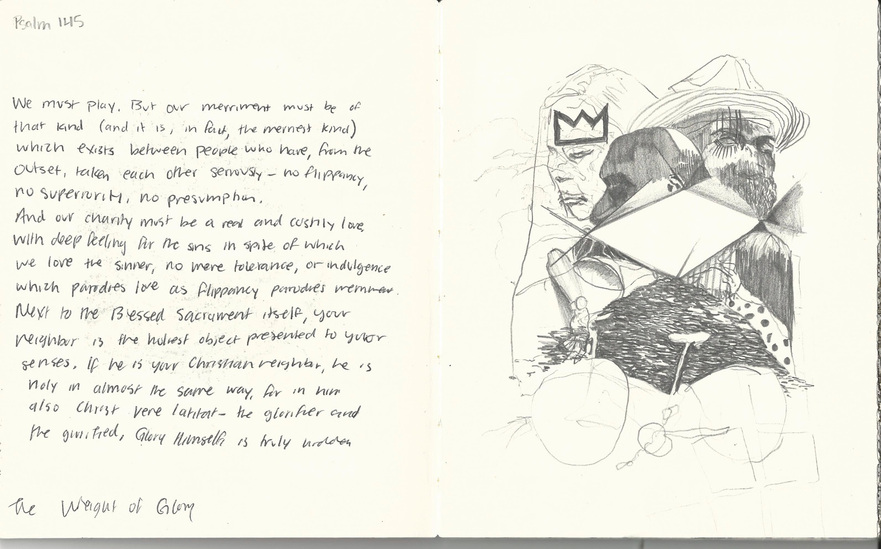 Psalm 145
We must play. But our merriment must be of
that kind (and it is, in fact, the merriest kind)
which exists between people who have, from the
outset, taken each other seriously – no flippancy,
no superiority, no presumption.
And our charity must be a real and costly love
with deep feeling for the sins in spite of which
we love the sinner, no mere tolerance, or indulgence
which parodies love as flippancy parodies
Next to the Blessed Sacrament itself, your
neighbor is the holiest object presented to your
senses. If he is your Christian neighbor, he is
holy in almost the same way, for in him
also Christ vere latitat – the glorifier and
the glorified, Glory Himself is truly hidden
The Weight of Glory